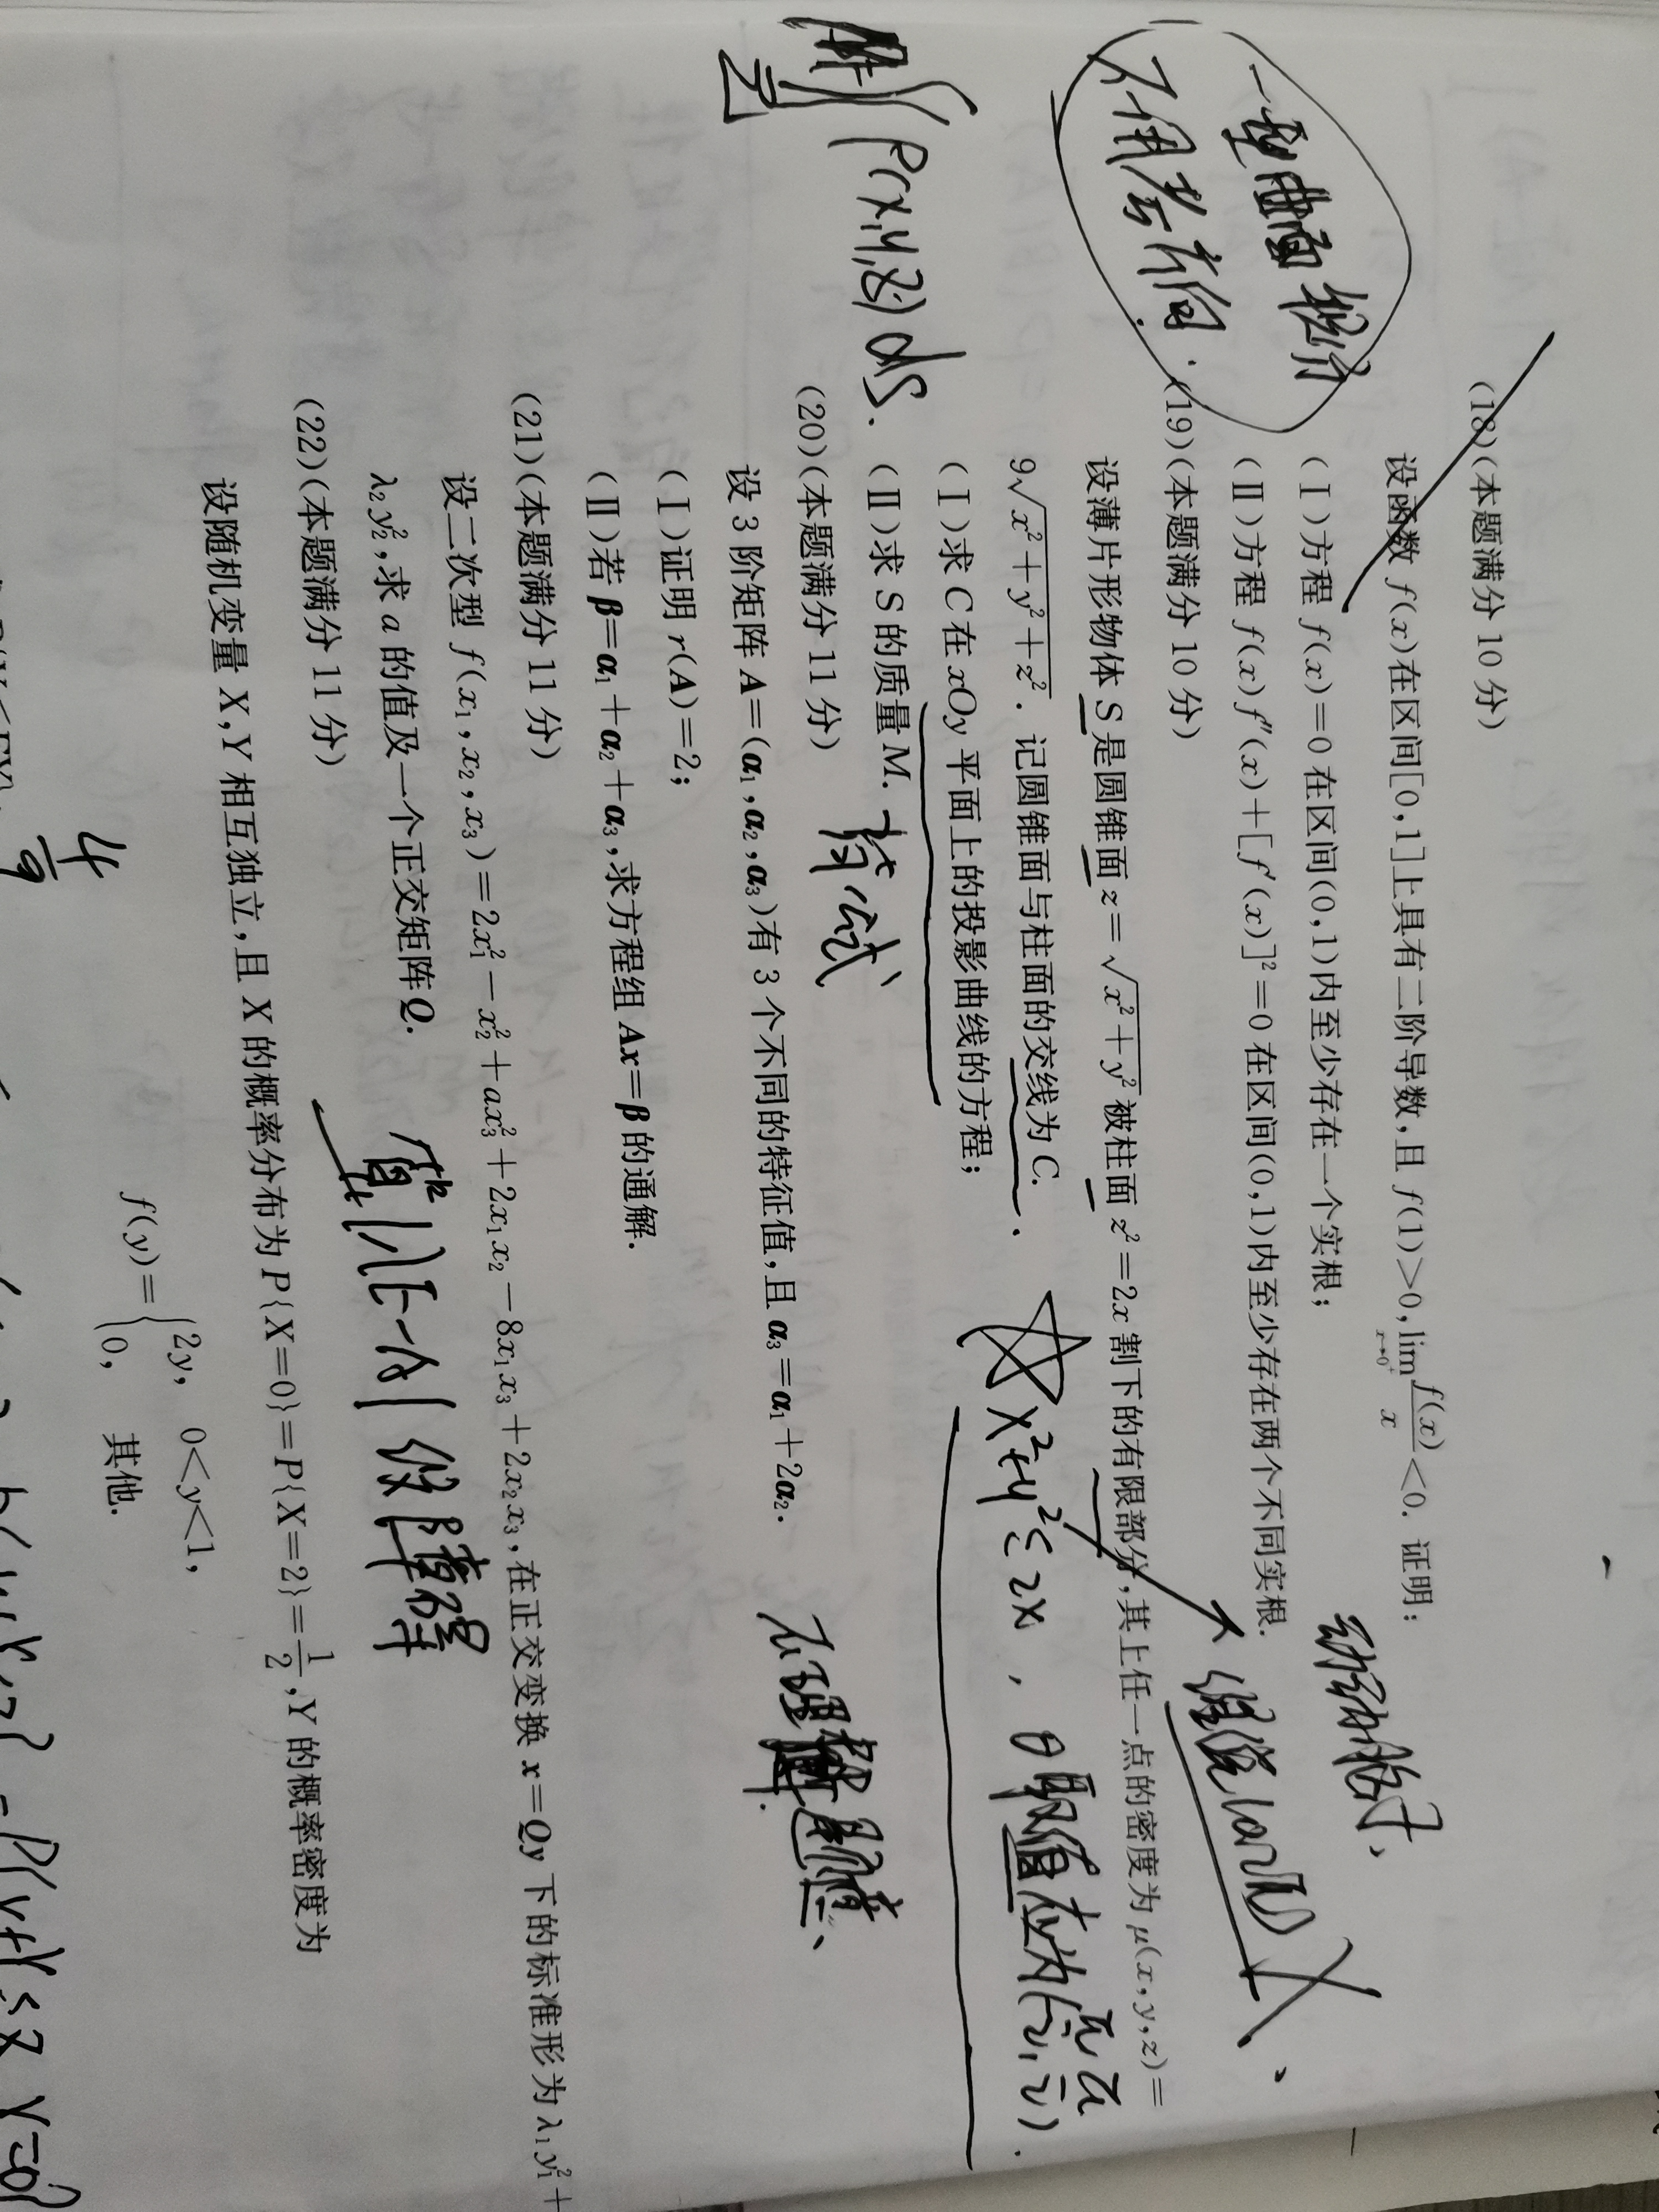 (18)(本题满分 10 分)
设函数 f(x)在区间[0,1]上具有二阶导数,且 f(1)>0,lim x→0⁺ f(x)/x <0. 证明:
(Ⅰ)方程 f(x)=0 在区间(0,1)内至少存在一个实根;
(Ⅱ)方程 f(x)f″(x)+[f′(x)]²=0 在区间(0,1)内至少存在两个不同实根.
一型曲面积分
不用考虑方向.
(19)(本题满分 10 分)
设薄片形物体 S 是圆锥面 z=√(x²+y²) 被柱面 z²=2x 割下的有限部分,其上任一点的密度为 μ(x,y,z)=
9√(x²+y²+z²). 记圆锥面与柱面的交线为 C.
x²+y²≤2x, θ取值应为(-π/2,π/2).
(Ⅰ)求 C 在 xOy 平面上的投影曲线的方程;
(Ⅱ)求 S 的质量 M.
P(x,y,z)dS.
(20)(本题满分 11 分)
设 3 阶矩阵 A=(α₁,α₂,α₃)有 3 个不同的特征值,且 α₃=α₁+2α₂.
(Ⅰ)证明 r(A)=2;
(Ⅱ)若 β=α₁+α₂+α₃,求方程组 Ax=β 的通解.
(21)(本题满分 11 分)
设二次型 f(x₁,x₂,x₃)=2x₁²-x₂²+ax₃²+2x₁x₂-8x₁x₃+2x₂x₃,在正交变换 x=Qy 下的标准形为 λ₁y₁²+
λ₂y₂²,求 a 的值及一个正交矩阵 Q.
(22)(本题满分 11 分)
设随机变量 X,Y 相互独立,且 X 的概率分布为 P{X=0}=P{X=2}=1/2,Y 的概率密度为
f(y)={2y, 0<y<1,
0, 其他.
4/9